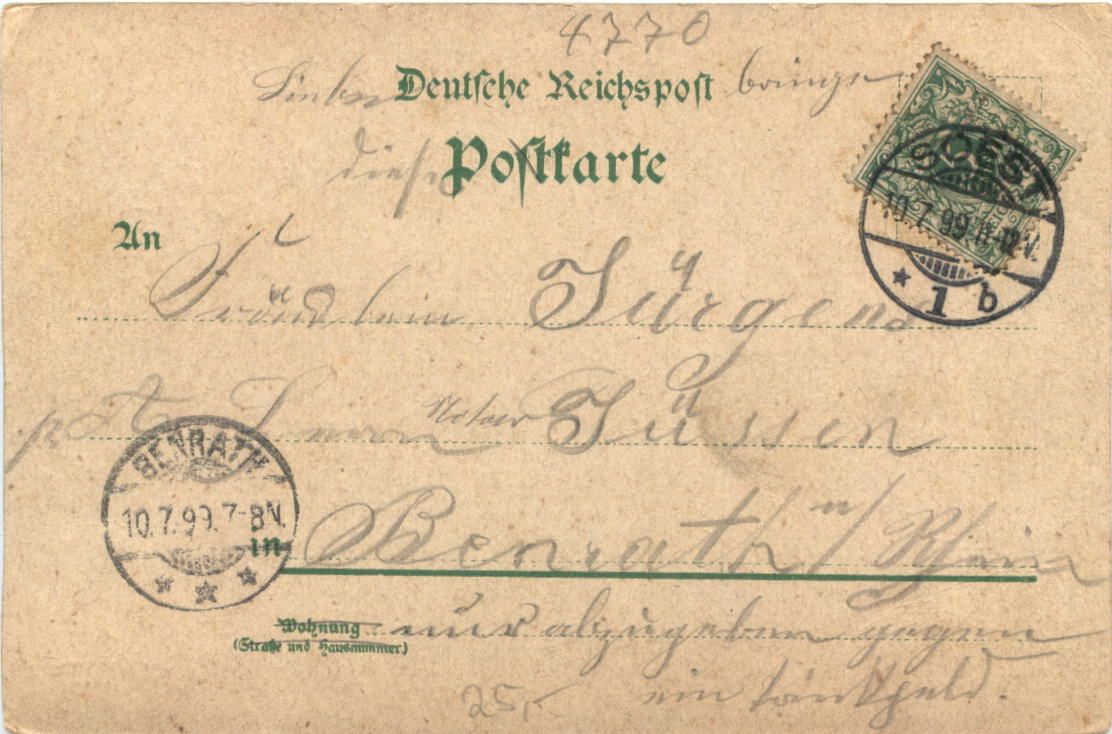 4770
Deutsche Reichspost bringe
diese Postkarte
SOEST
10.7.99. 11-12V.
* 1 b
An
Fräulein Jürgens
Herrn Notar Jüssen
BENRATH
10.7.99. 7-8N.
in Benrath a/Rhein
Wohnung nur abzugeben gegen
(Straße und Hausnummer.)
25,- ein